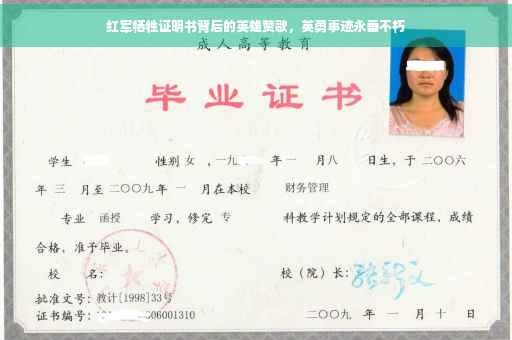 红军牺牲证明书背后的英雄赞歌，英勇事迹永垂不朽
成人高等教育
毕业证书
学生 性别 女 ，一九 年 一 月 八 日生，于 二〇〇六
年 三 月至 二〇〇九 年 一 月在本校 财务管理
专业 函授 学习，修完 专 科教学计划规定的全部课程，成绩
合格，准予毕业。
校 名： 校（院）长：
批准文号：教计[1998]33号
证书编号： 06001310 二〇〇九 年 一 月 十 日